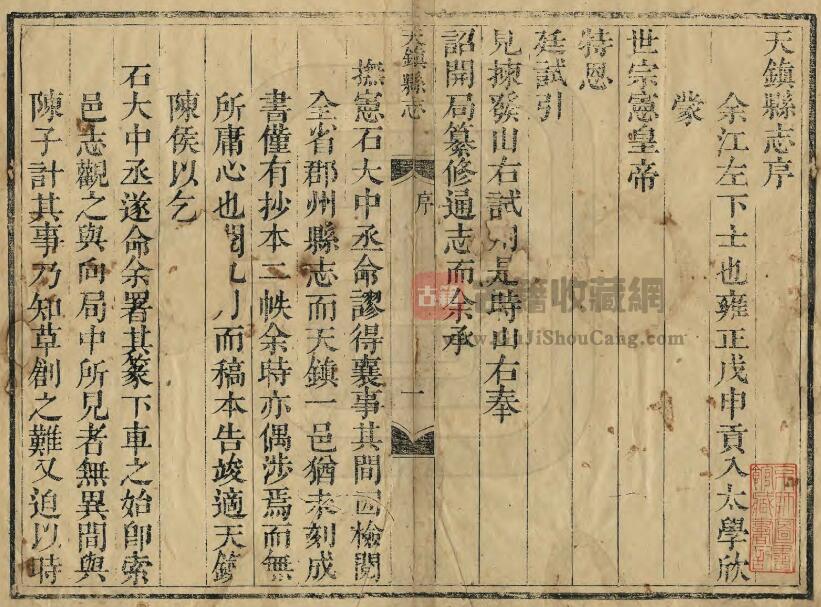 天鎮縣志序
余江左下士也雍正戊申貢入太學欣
蒙
世宗憲皇帝
特恩
廷試引
見揀發山右試用是時山右奉
詔開局纂修通志而余承
天鎮縣志
序
一
撫憲石大中丞命謬得襄事其間因檢閱
全省郡州縣志而天鎮一邑猶未刻成
書僅有抄本二帙余時亦偶涉焉而無
所庸心也閱九月而稿本告竣適天鎮
陳侯以乞
石大中丞遂命余署其篆下車之始卽索
邑志觀之與向局中所見者無異間與
陳子計其事乃知草創之難又迫以時
古籍
古籍收藏網
www.GuJiShouCang.com